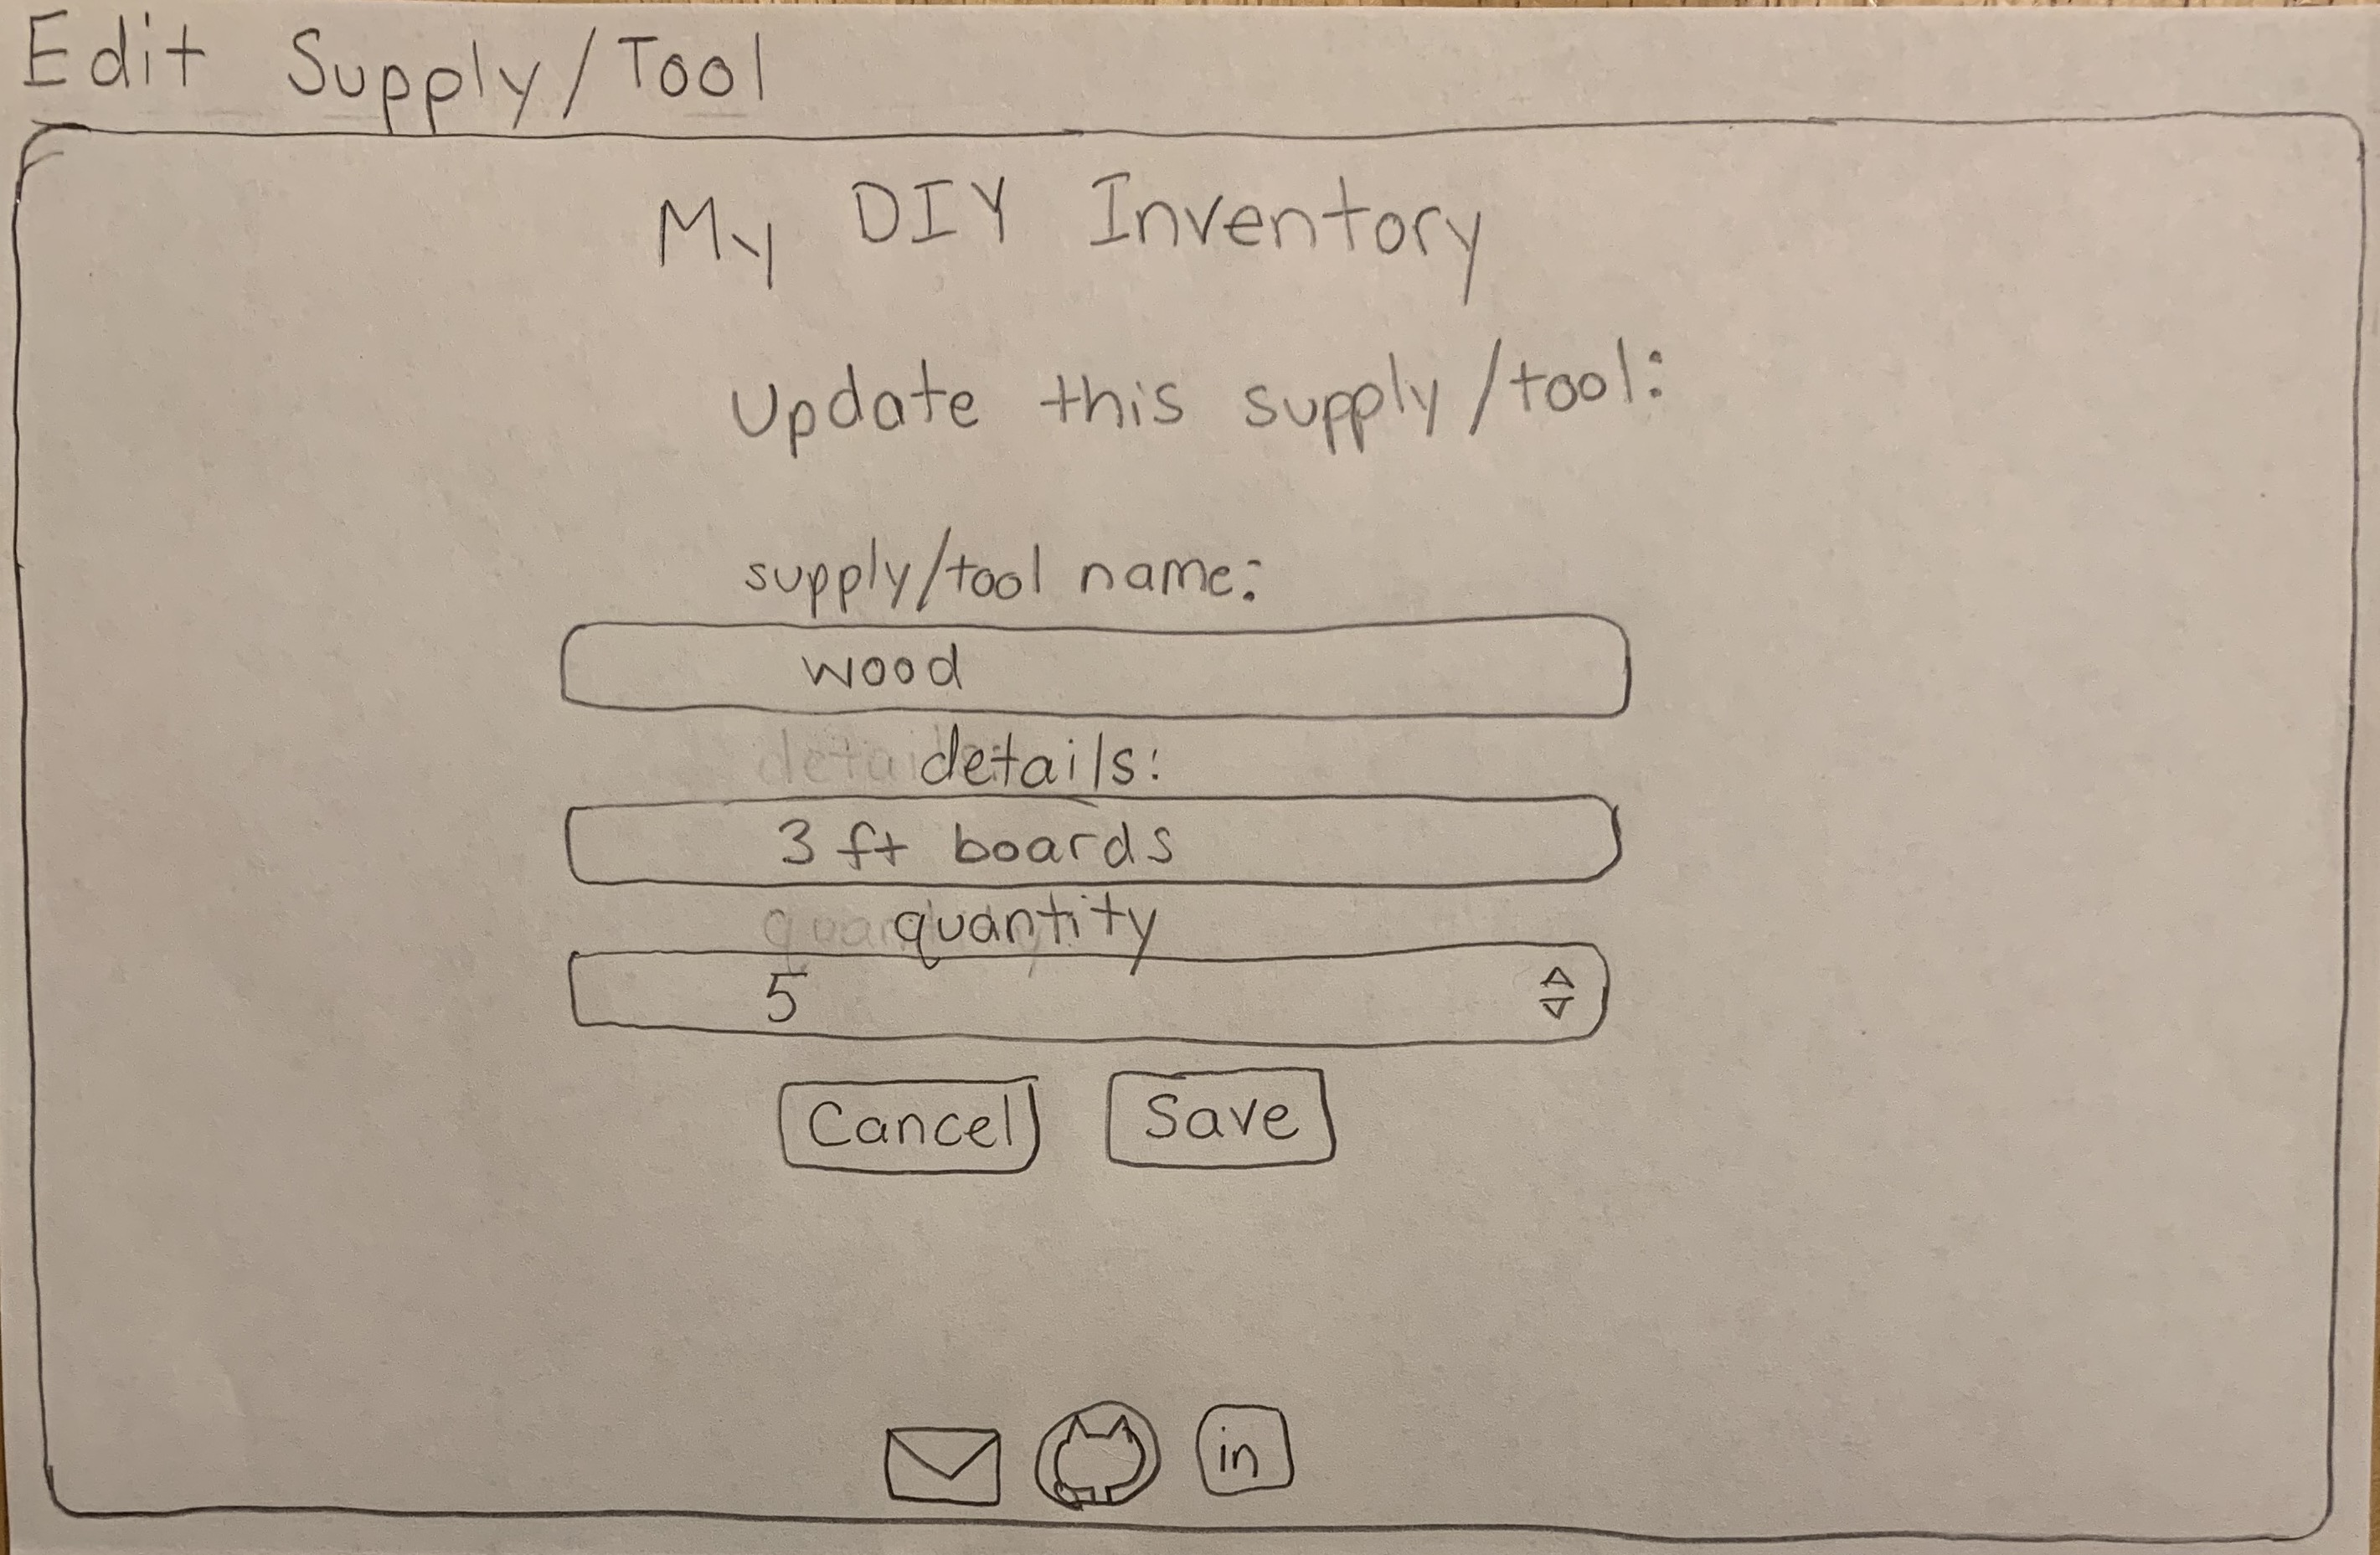 Edit Supply/Tool
My DIY Inventory
Update this supply/tool:
supply/tool name:
wood
details:
3 ft boards
quantity
5
Cancel Save
in